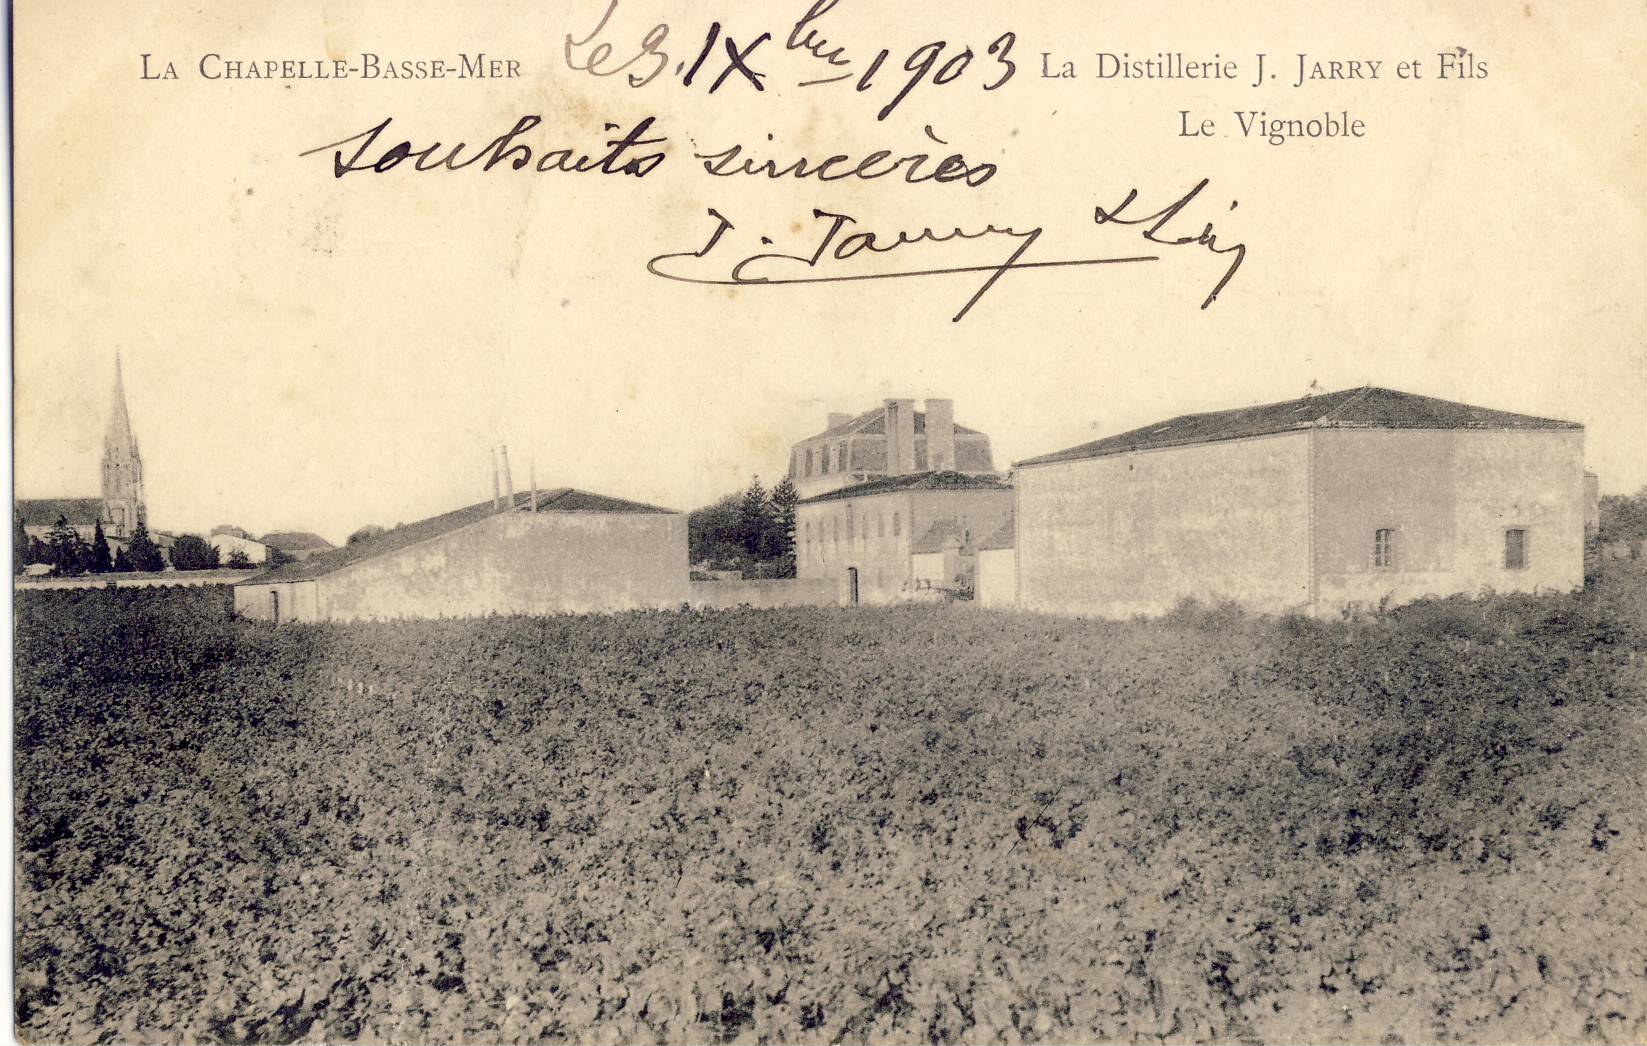 La Chapelle-Basse-Mer
Le 3. IXbre 1903
La Distillerie J. Jarry et Fils
Le Vignoble
souhaits sincères
J. Jarry & Fils